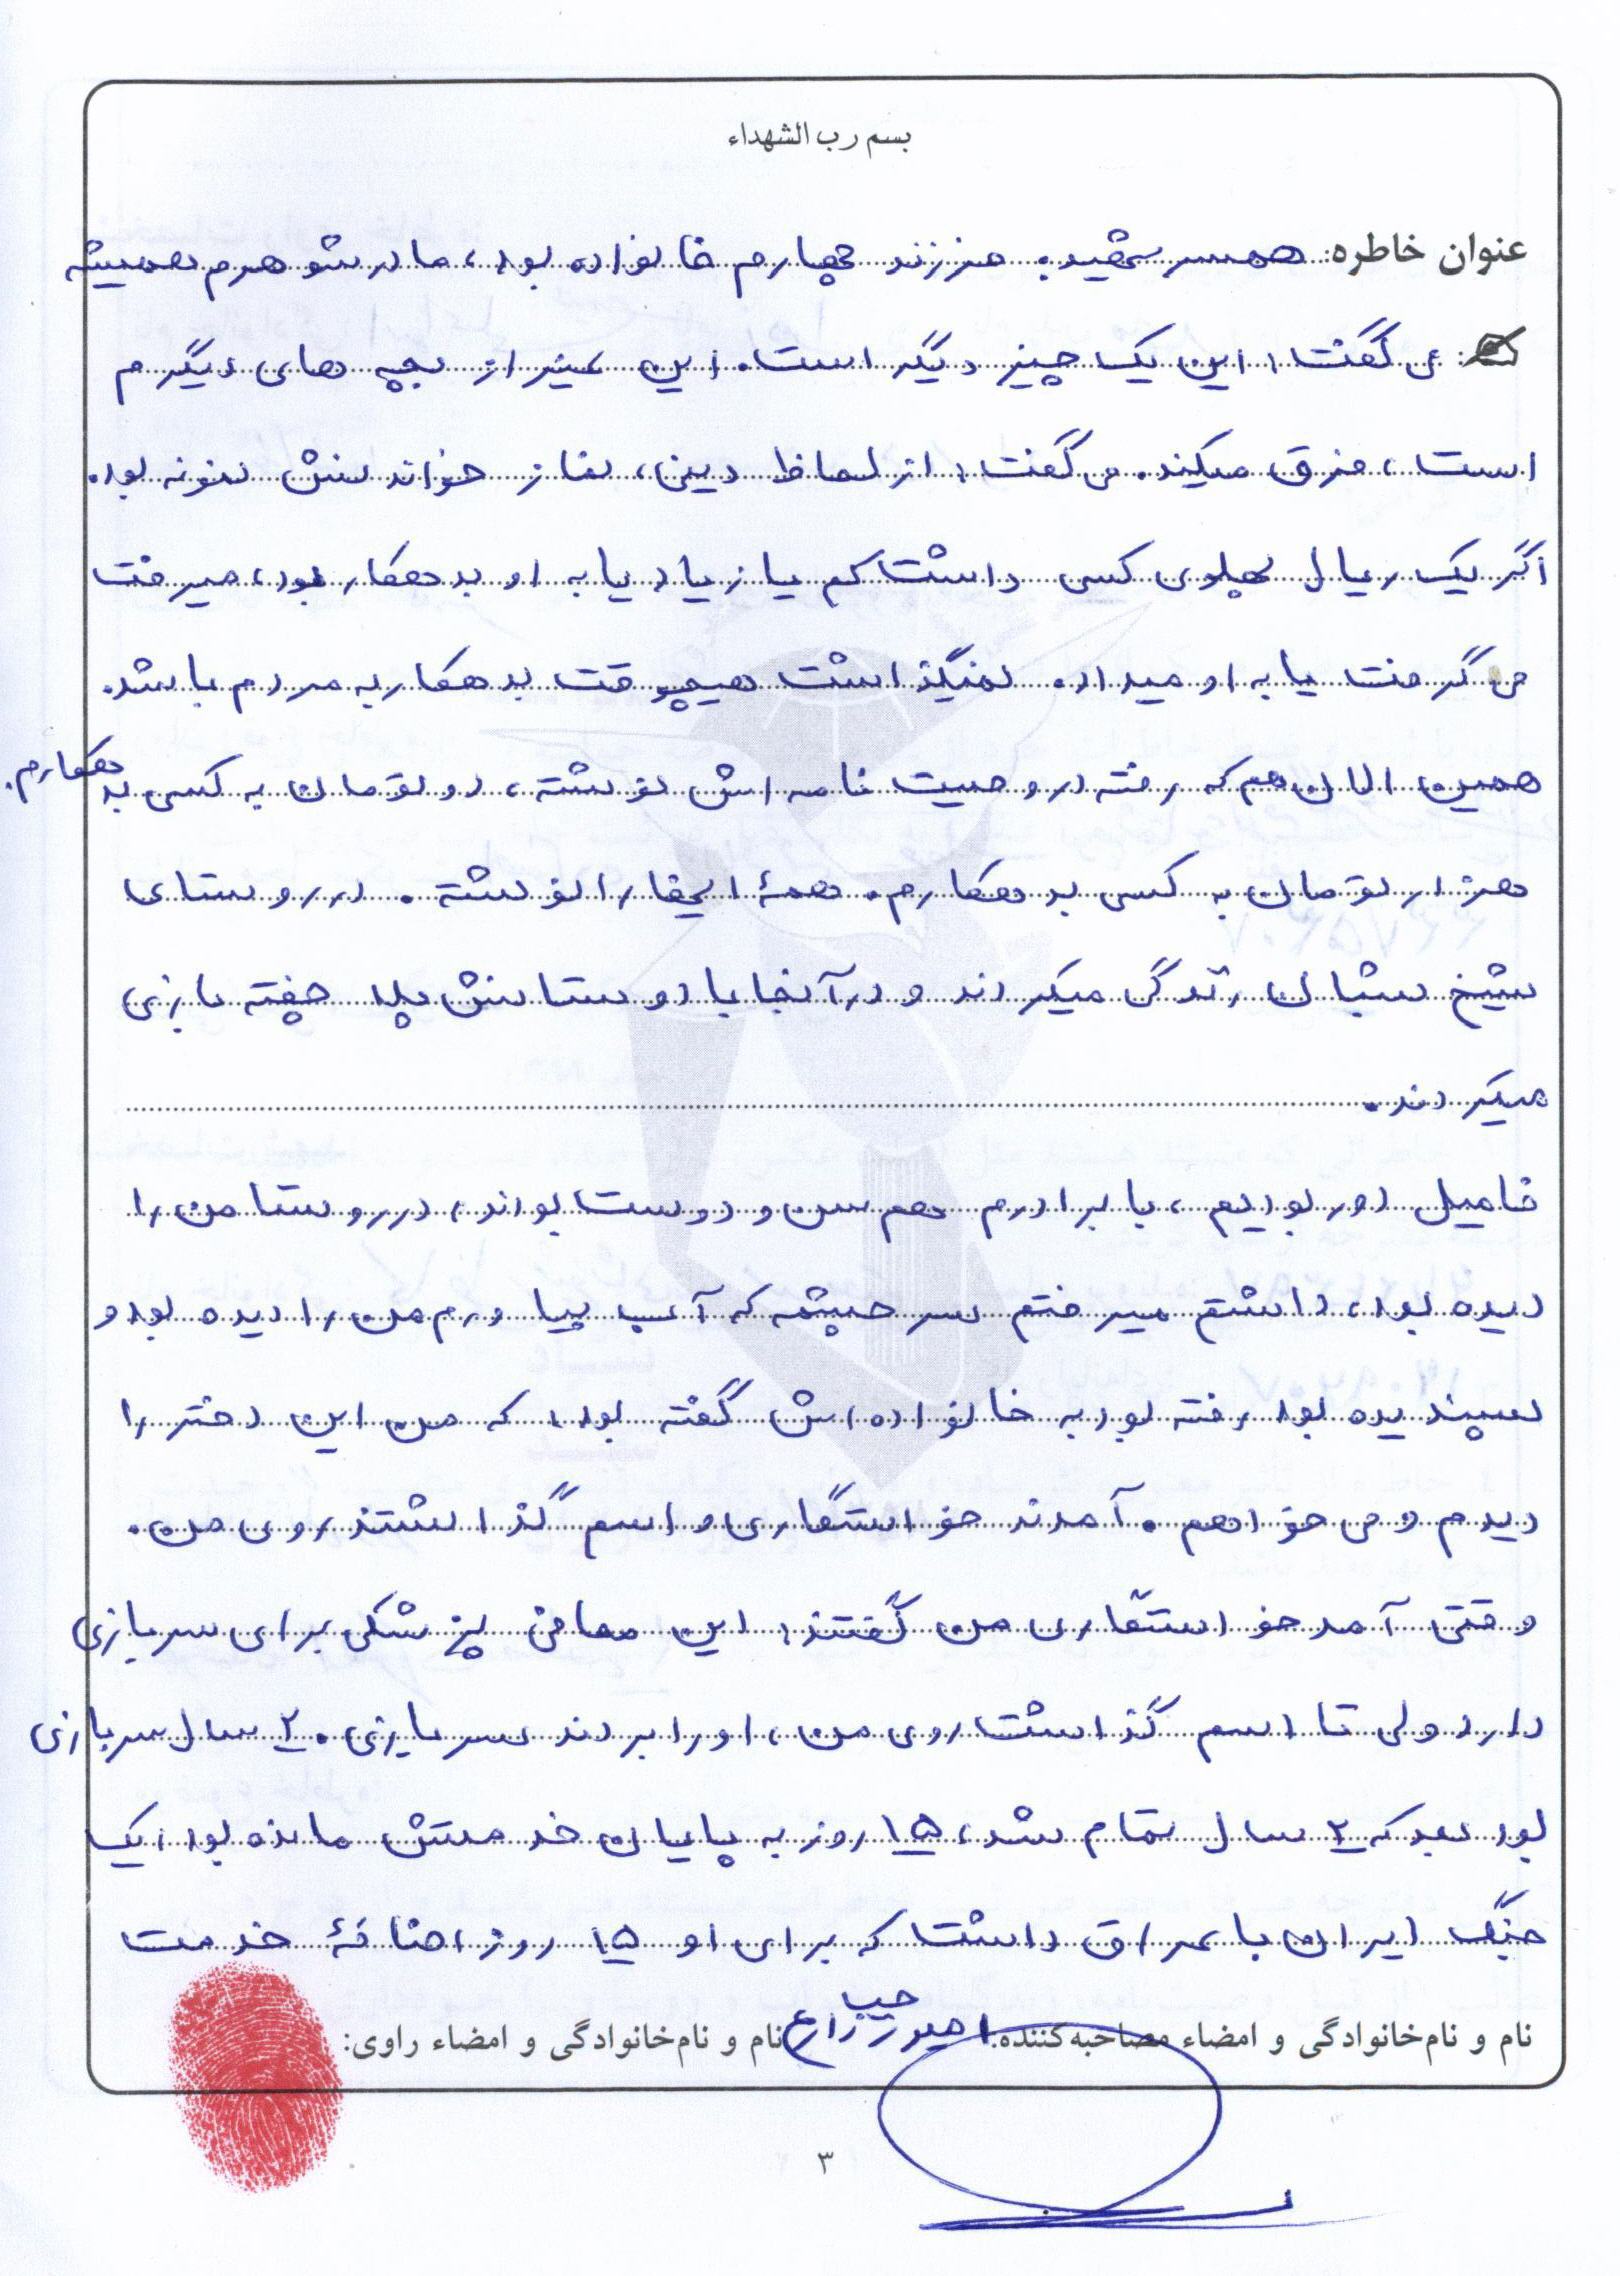 بسم رب الشهداء
عنوان خاطره: همسر شهید: فرزند چهارم خانواده بود، مادر شوهرم همیشه
می گفت: این یک چیز دیگر است. این غیر از بچه های دیگرم
است، فرق میکند. می گفت: از لحاظ دینی، نماز خواندنش نمونه بود.
اگر یک ریال پهلوی کسی داشت کم یا زیاد یا به او بدهکار بود، میرفت
می گرفت یا به او میداد. نمیگذاشت هیچوقت بدهکار به مردم باشد.
همین الان هم که رفته در وصیت نامه اش نوشته، دو تومان به کسی بدهکارم.
هزار تومان به کسی بدهکارم. همهٔ اینها را نوشته. در روستای
شیخ شبان زندگی میکردند و در آنجا با دوستانش پلا چفته بازی
میکردند.
فامیل دور بودیم، با برادرم هم سن و دوست بودند، در روستا من را
دیده بود، داشتم میرفتم سر چشمه که آب بیاورم من را دیده بود و
پسندیده بود رفته بود به خانواده اش گفته بود، که من این دختر را
دیدم و می خواهم. آمدند خواستگاری و اسم گذاشتند روی من.
وقتی آمد خواستگاری من گفتند: این معافی پزشکی برای سربازی
دارد ولی تا اسم گذاشت روی من، او را بردند سربازی. ۲ سال سربازی
بود بعد که ۲ سال تمام شد، ۱۵ روز به پایان خدمتش مانده بود، یک
جنگ ایران با عراق داشت که برای او ۱۵ روز اضافهٔ خدمت
نام و نام‌خانوادگی و امضاء مصاحبه‌کننده: امیر زارع نام و نام‌خانوادگی و امضاء راوی:
۳